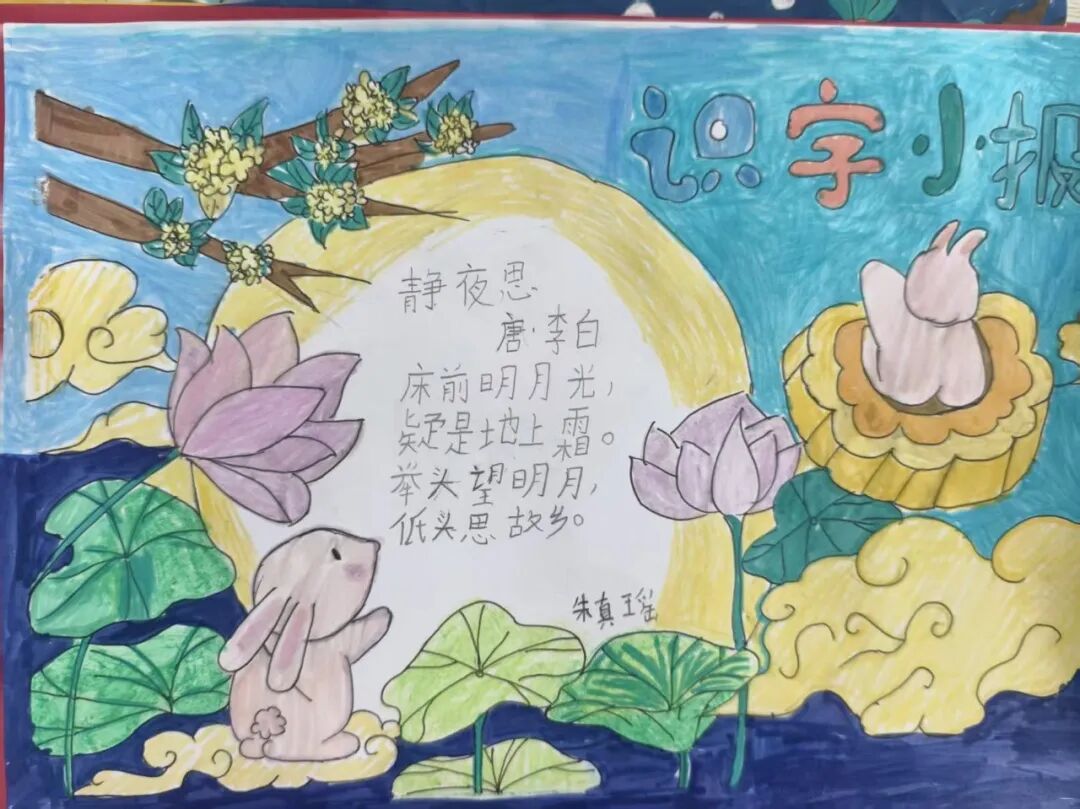 识字小报
静夜思
唐·李白
床前明月光，
疑是地上霜。
举头望明月，
低头思故乡。
朱真瑶